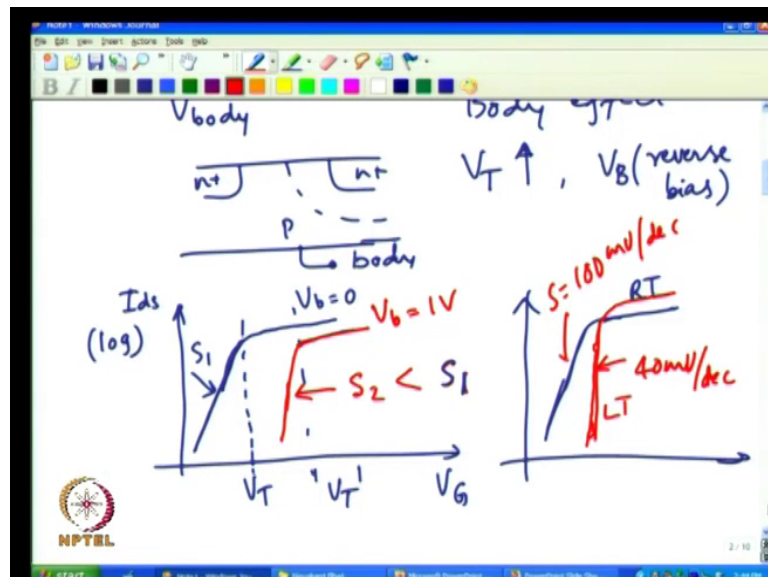 Note1 - Windows Journal
File Edit View Insert Actions Tools Help
B I
V body
Body effect
n+
n+
P
body
V_T ↑ , V_B (reverse
bias)
Ids
(log)
S_1
V_b=0
V_b = 1V
S_2 < S_1
V_T
V_T'
V_G
S=100mV/dec
RT
40mV/dec
LT
NPTEL
2 / 10
start